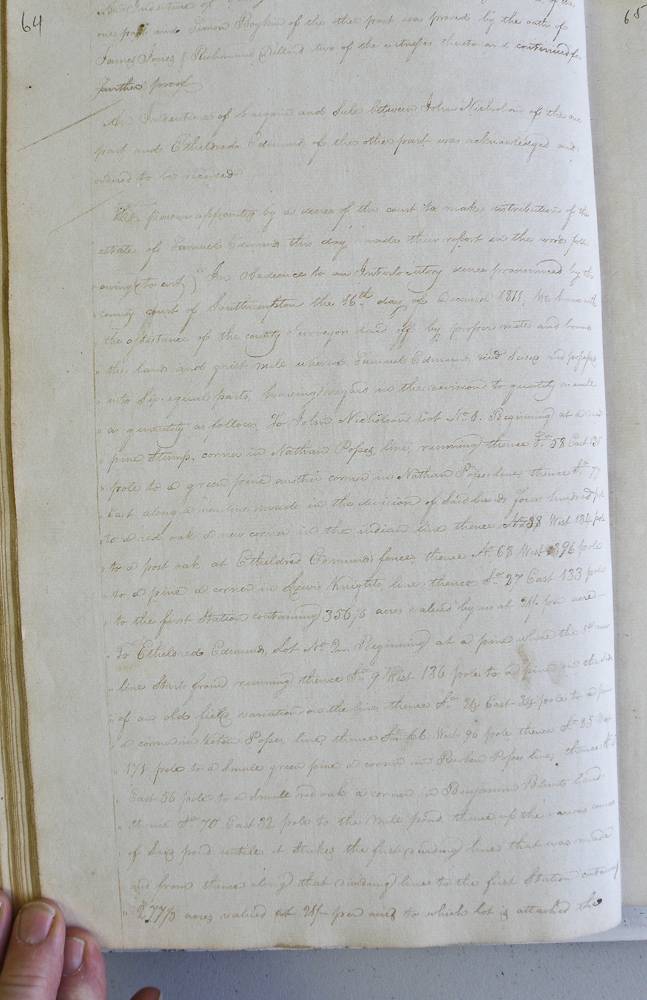 64
65
one part and Simon Boykin of the other part was proved by the oath of
James Jones & Richmond two of the witnesses thereto and continued for
further proof
An Indenture of bargain and sale between John Nicholson of the one
part and Etheldred Edmunds of the other part was acknowledged and
ordered to be recorded
The persons appointed by a decree of the court to make distribution of the
estate of Samuel Edmunds this day made their report in the words foll
owing (to wit) In Obedience to an Interlocutory decree pronounced by the
county court of Southampton the 16th day of December 1811, We have with
the assistance of the county surveyor laid off by proper metes and bounds
the land and grist mill whereof Samuel Edmunds died seized and possessed
into Six equal parts, having regard in the division to quality as well
as quantity as follows, To John Nicholson Lot No. 1. Beginning at a
pine Stump, corner in Nathan Popes line, running thence So. 58 East 135
pole to a green pine another corner in Nathan Popes line thence So. 77
East along a new line made in the division of said lands four hundred pole
to a red oak a new corner in the indian line thence No. 38 West 184 pole
to a post oak at Etheldred Edmunds fence, thence No. 68 West 396 pole
to a pine a corner in Lewis Knights line, thence So. 27 East 133 pole
to the first Station containing 356½ acres valued by us at 24/- per acre
To Etheldred Edmunds, Lot No. 2. Beginning at a pine where the 1st
line Starts from running thence So. 9 West 136 pole to a pine on the side
of an old field, variation on the line, thence So. 24 East 34 pole to a pine
a corner in Popes line, thence So. 66 West 96 pole thence So. 85
171 pole to a small green pine a corner in Popes line, thence
East 56 pole to a small red oak a corner in Benjamin Blunts land
thence So. 70 East 32 pole to the Mill pond thence up the various courses
of Said pond untill it Strikes the first dividing line that was made
and from thence along that dividing line to the first Station containing
277½ acres valued at 24/- per acre to which lot is attached the